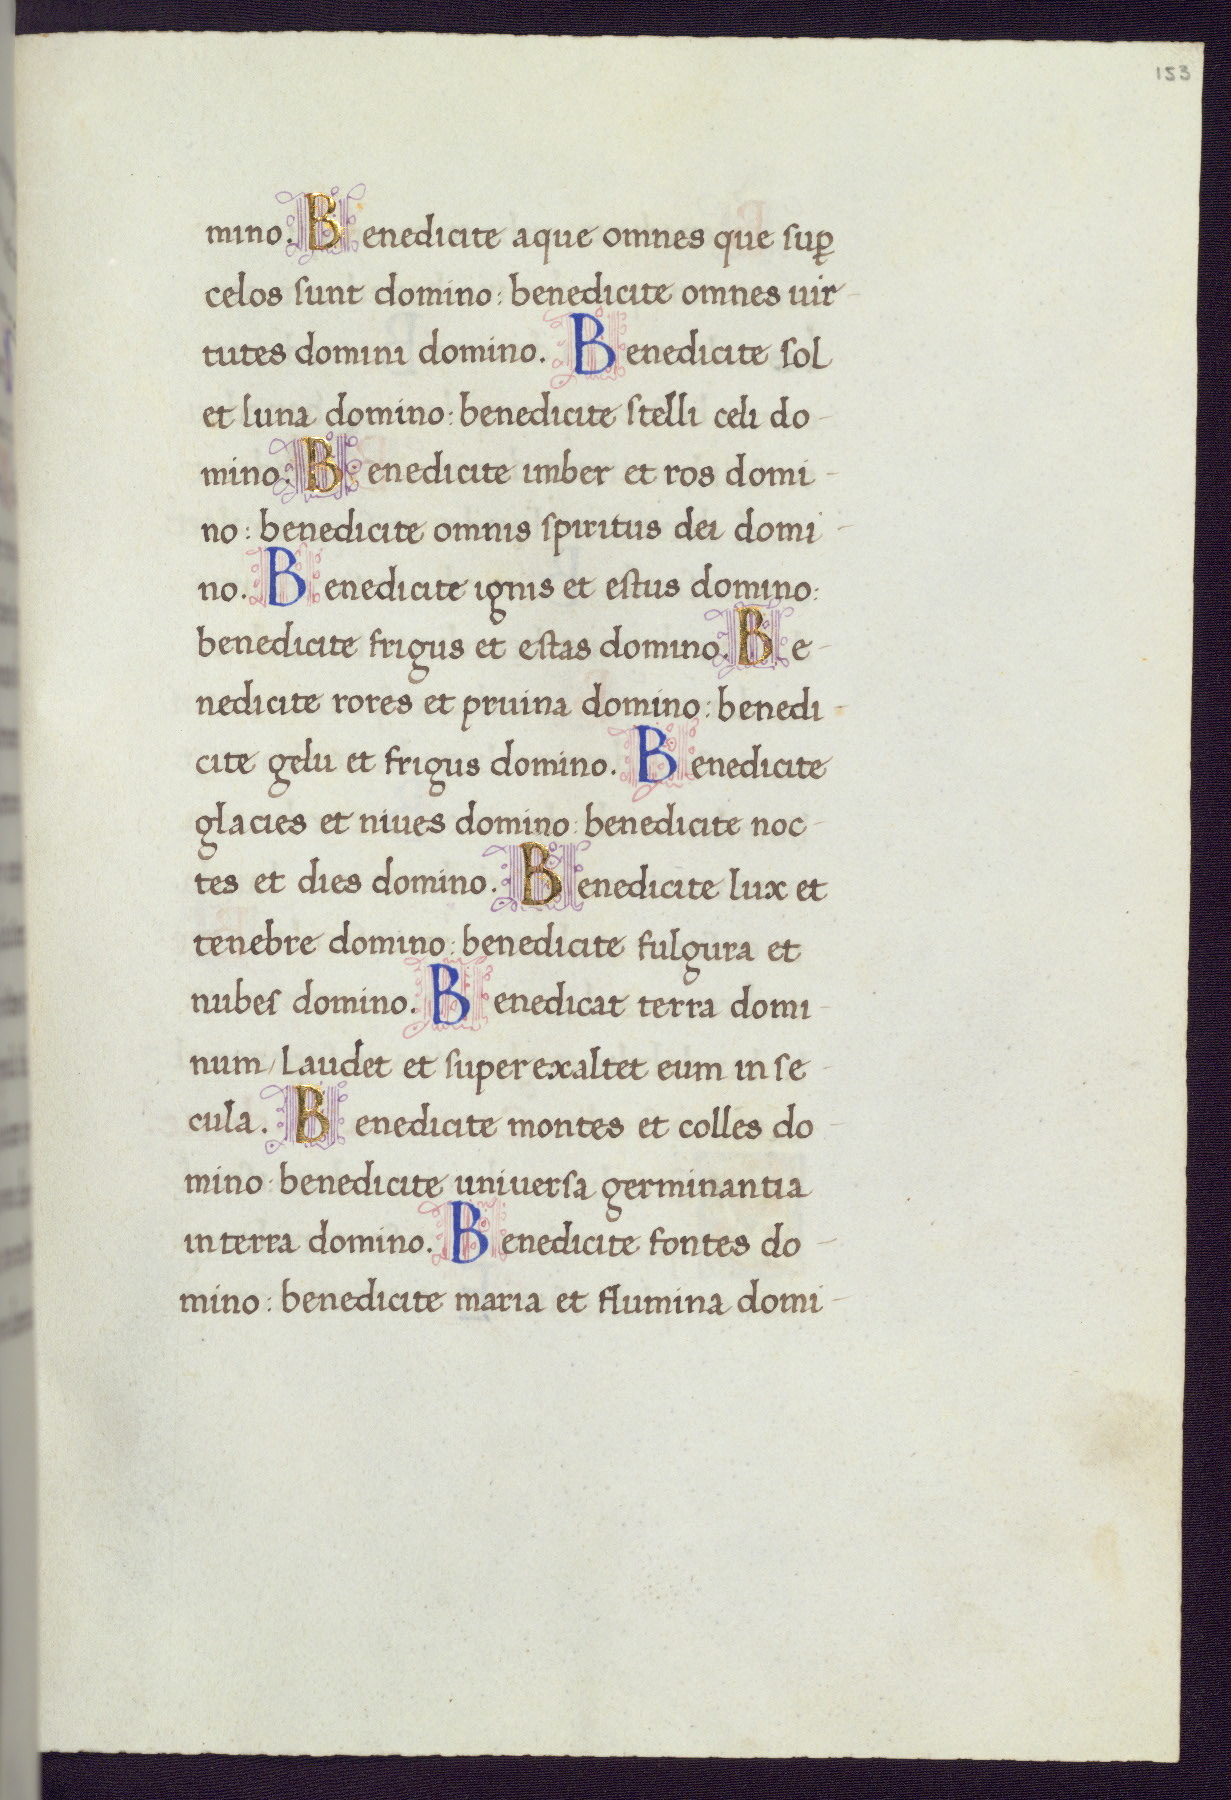 153
mino. Benedicite aque omnes que sup̱
celos sunt domino: benedicite omnes uir-
tutes domini domino. Benedicite sol
et luna domino: benedicite stelli celi do-
mino: Benedicite imber et ros domi-
no: benedicite omnis spiritus dei domi-
no. Benedicite ignis et estus domino:
benedicite frigus et estas domino. Be-
nedicite rores et pruina domino: benedi-
cite gelu et frigus domino. Benedicite
glacies et niues domino: benedicite noc-
tes et dies domino. Benedicite lux et
tenebre domino: benedicite fulgura et
nubes domino. Benedicat terra domi-
num/ laudet et superexaltet eum in se-
cula. Benedicite montes et colles do-
mino: benedicite universa germinantia
in terra domino. Benedicite fontes do-
mino: benedicite maria et flumina domi-